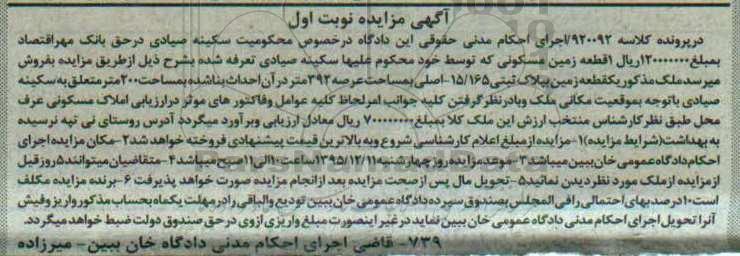 آگهی مزایده نوبت اول
درپرونده کلاسه ۹۲۰۰۹۲/اجرای احکام مدنی حقوقی این دادگاه درخصوص محکومیت سکینه صیادی درحق بانک مهراقتصاد
بمبلغ۱۲۰۰۰۰۰۰۰ریال ۱قطعه زمین مسکونی که توسط خود محکوم علیها سکینه صیادی تعرفه شده بشرح ذیل ازطریق مزایده بفروش
میرسدملک مذکوریکقطعه زمین پلاک ثبتی۱۵/۱۶۵-اصلی بمساحت عرصه۲۹۲متر در آن احداث بناشده بمساحت۲۰۰متر متعلق به سکینه
صیادی باتوجه بموقعیت مکانی ملک وبادرنظرگرفتن کلیه جوانب امرلحاظ کلیه عوامل وفاکتور های موثر درارزیابی املاک مسکونی عرف
محل طبق نظرکارشناس منتخب ارزش این ملک کلا بمبلغ۷۰۰۰۰۰۰۰۰ ریال معادل ارزیابی وبرآورد میگردد آدرس روستای نی تپه نرسیده
به بهداشت(شرایط مزایده)۱-مزایده ازمبلغ اعلام کارشناسی شروع وبه بالاترین قیمت پیشنهادی فروخته خواهد شد۲-مکان مزایده اجرای
احکام دادگاه عمومی خان ببین میباشد۳-موعدمزایده روزچهارشنبه ۱۳۹۵/۱۲/۱۱ساعت۱۰الی۱۱صبح میباشد۴-متقاضیان میتوانند۵روزقبل
ازمزایده ازملک مورد نظردیدن نمائید۵-تحویل مال پس ازصحت مزایده بعد ازانجام مزایده صورت خواهد پذیرفت ۶-برنده مزایده مکلف
است۱۰درصدبهای احتمالی رافی المجلس بصندوق سپرده دادگاه عمومی خان ببین تودیع والباقی رادرمهلت یکماه بحساب مذکورواریزوفیش
آنرا تحویل اجرای احکام مدنی دادگاه عمومی خان ببین نماید درغیر اینصورت مبلغ واریزی ازوی درحق صندوق دولت ضبط خواهد میگردد.
۷۳۹- قاضی اجرای احکام مدنی دادگاه خان ببین- میرزاده